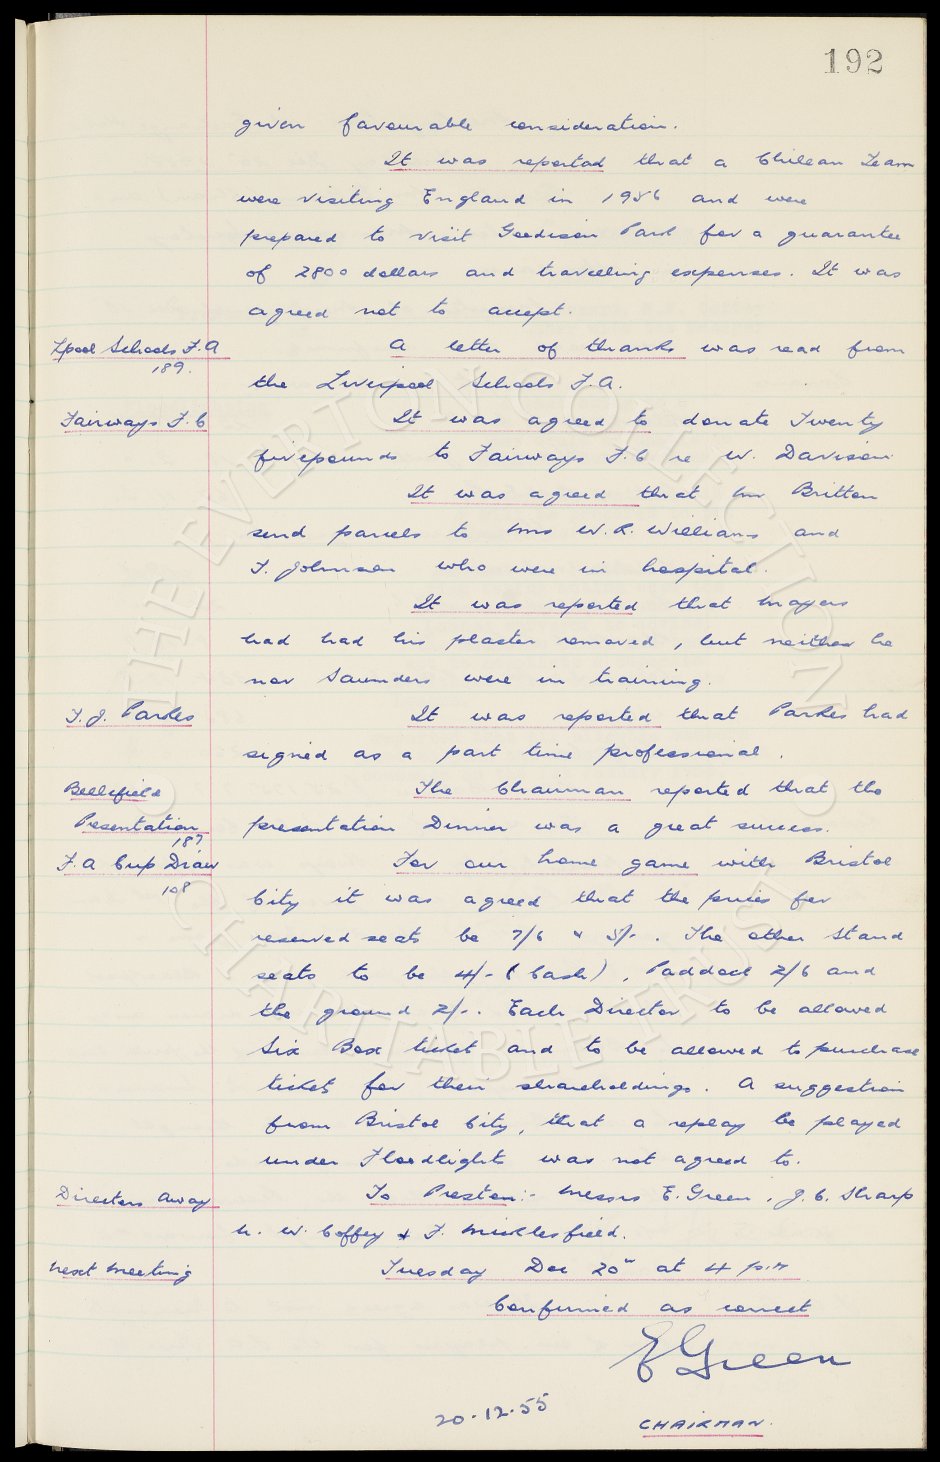 192
given favourable consideration.
It was reported that a Chilean Team
were visiting England in 1956 and were
prepared to visit Goodison Park for a guarantee
of 2800 dollars and travelling expenses. It was
agreed not to accept.
Lpool Schools F.A
189.
A letter of thanks was read from
the Liverpool Schools F.A.
Fairways F.C
It was agreed to donate Twenty
fivepounds to Fairways F.C re W. Davison.
It was agreed that Mr Britton
send parcels to Mrs W.R. Williams and
T. Johnson who were in hospital.
It was reported that Mayers
had had his plaster removed, but neither he
nor Saunders were in training.
T.J. Parkes
It was reported that Parkes had
signed as a part time professional.
Bellefield
Presentation
187
The Chairman reported that the
presentation Dinner was a great success.
F.A Cup Draw
188
For our home game with Bristol
City it was agreed that the prices for
reserved seats be 7/6 & 5/-. The other Stand
seats to be 4/- (Cash), Paddock 2/6 and
the ground 2/-. Each Director to be allowed
Six Box ticket and to be allowed to purchase
tickets for their shareholdings. A suggestion
from Bristol City, that a replay be played
under Floodlights was not agreed to.
Directors Away
To Preston:- Messrs E. Green, J.C. Sharp
N. W. Coffey & F. Micklesfield.
Next Meeting
Tuesday Dec 20th at 4 p.m
Confirmed as correct
E Green
20.12.55
CHAIRMAN.
THE EVERTON COLLECTION
CHARITABLE TRUST